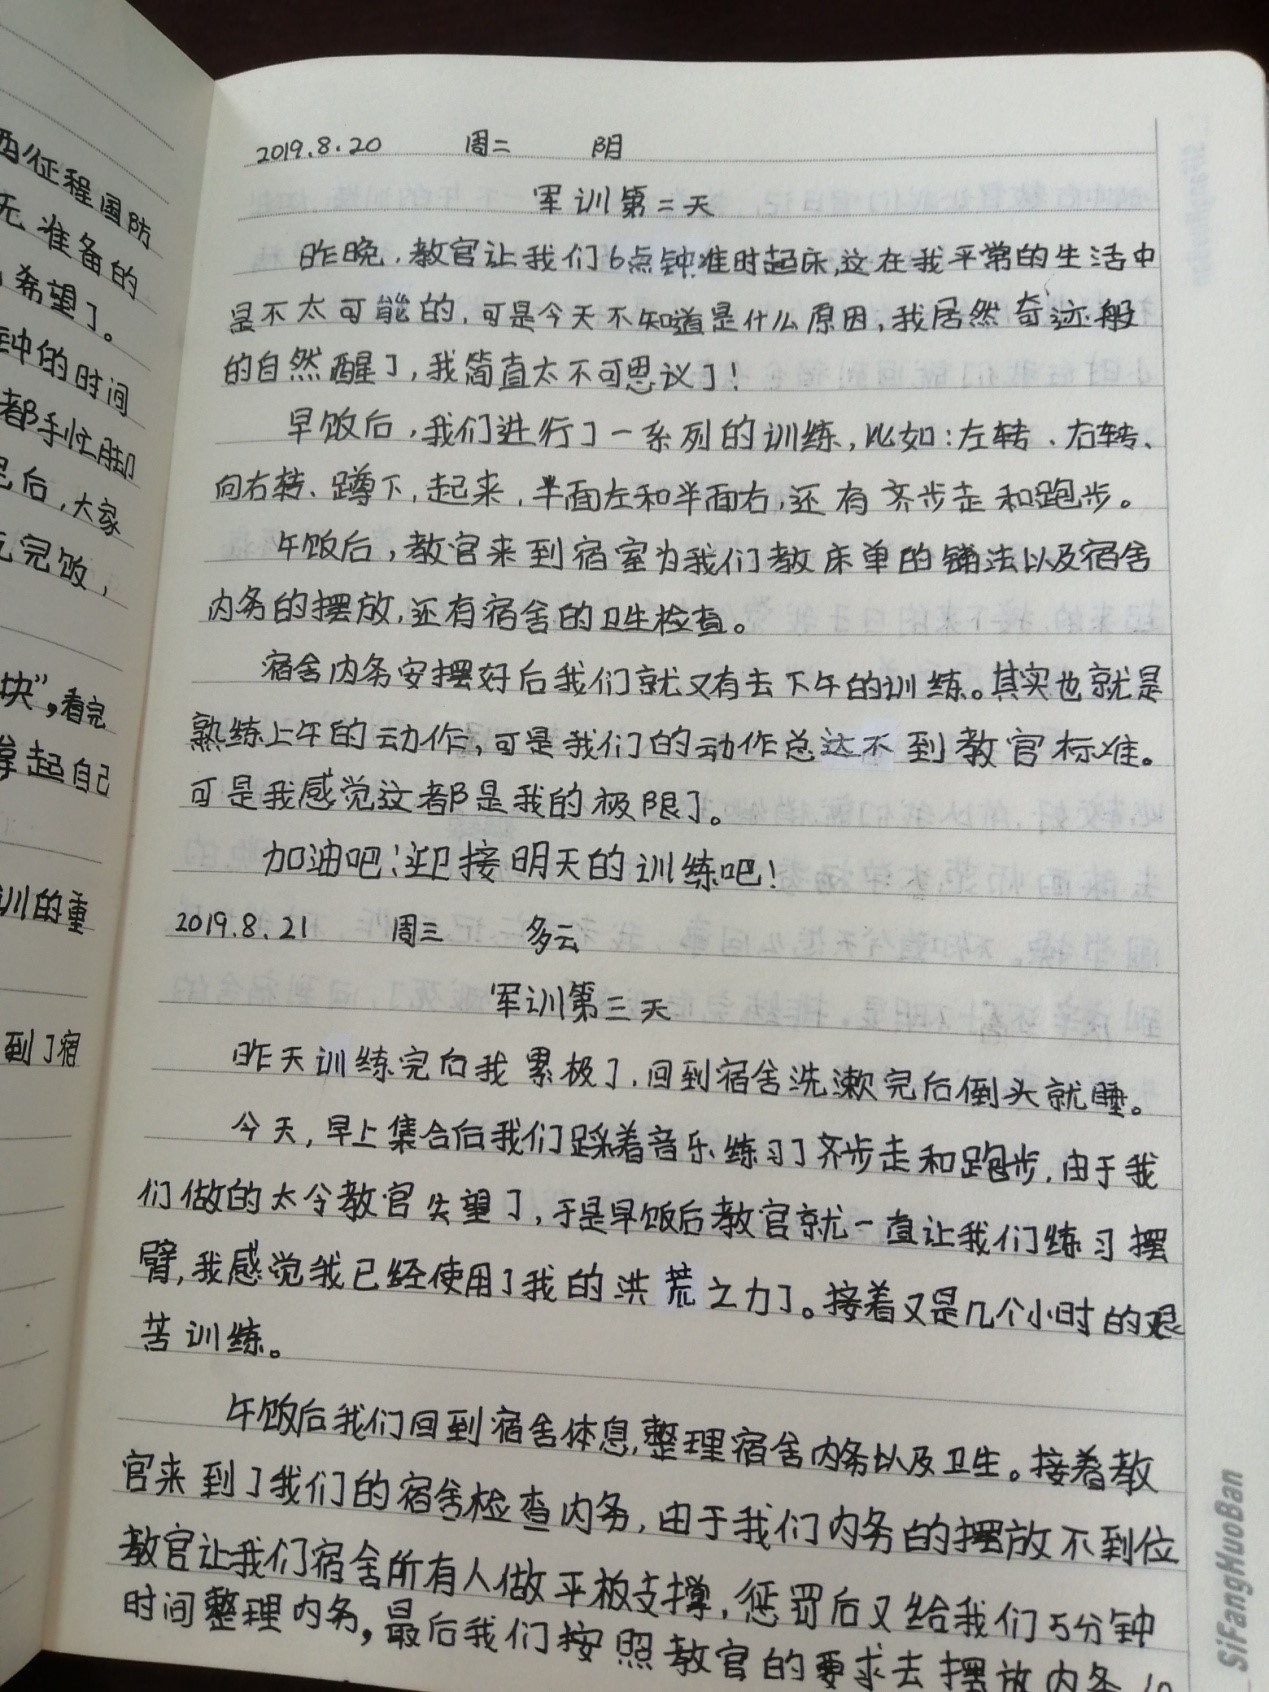 西征程国防
无准备的
希望了。
钟的时间
都手忙脚
后,大家
完饭,
块”,看完
撑起自己
训的重
到了宿
2019.8.20 周二 阴
军训第二天
昨晚,教官让我们6点钟准时起床,这在我平常的生活中
是不太可能的,可是今天不知道是什么原因,我居然奇迹般
的自然醒了,我简直太不可思议了!
早饭后,我们进行了一系列的训练,比如:左转、右转、
向右转、蹲下,起来,半面左和半面右,还有齐步走和跑步。
午饭后,教官来到宿室为我们教床单的铺法以及宿舍
内务的摆放,还有宿舍的卫生检查。
宿舍内务安摆好后我们就又有去下午的训练。其实也就是
熟练上午的动作,可是我们的动作总达不到教官标准。
可是我感觉这都是我的极限了。
加油吧!迎接明天的训练吧!
2019.8.21 周三 多云
军训第三天
昨天训练完后我累极了,回到宿舍洗漱完后倒头就睡。
今天,早上集合后我们踩着音乐练习了齐步走和跑步,由于我
们做的太令教官失望了,于是早饭后教官就一直让我们练习摆
臂,我感觉我已经使用了我的洪荒之力了。接着又是几个小时的艰
苦训练。
午饭后我们回到宿舍体息,整理宿舍内务以及卫生。接着教
官来到了我们的宿舍检查内务,由于我们内务的摆放不到位
教官让我们宿舍所有人做平板支撑,惩罚后又给我们5分钟
时间整理内务,最后我们按照教官的要求去摆放内务
SiFangHuoBan